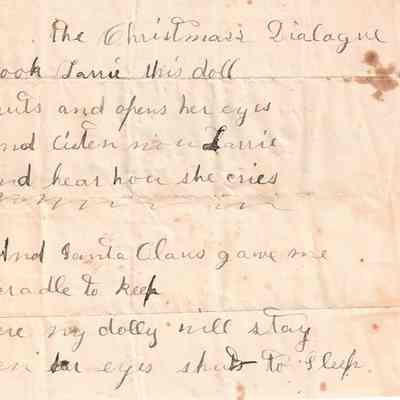 The Christmass Dialogue
ook Larrie this doll
uts and opens her eyes
nd listen now Larrie
nd hear how she cries
And Santa Claus gave me
cradle to keep
ere my dolly will stay
en her eyes shuts to sleep.